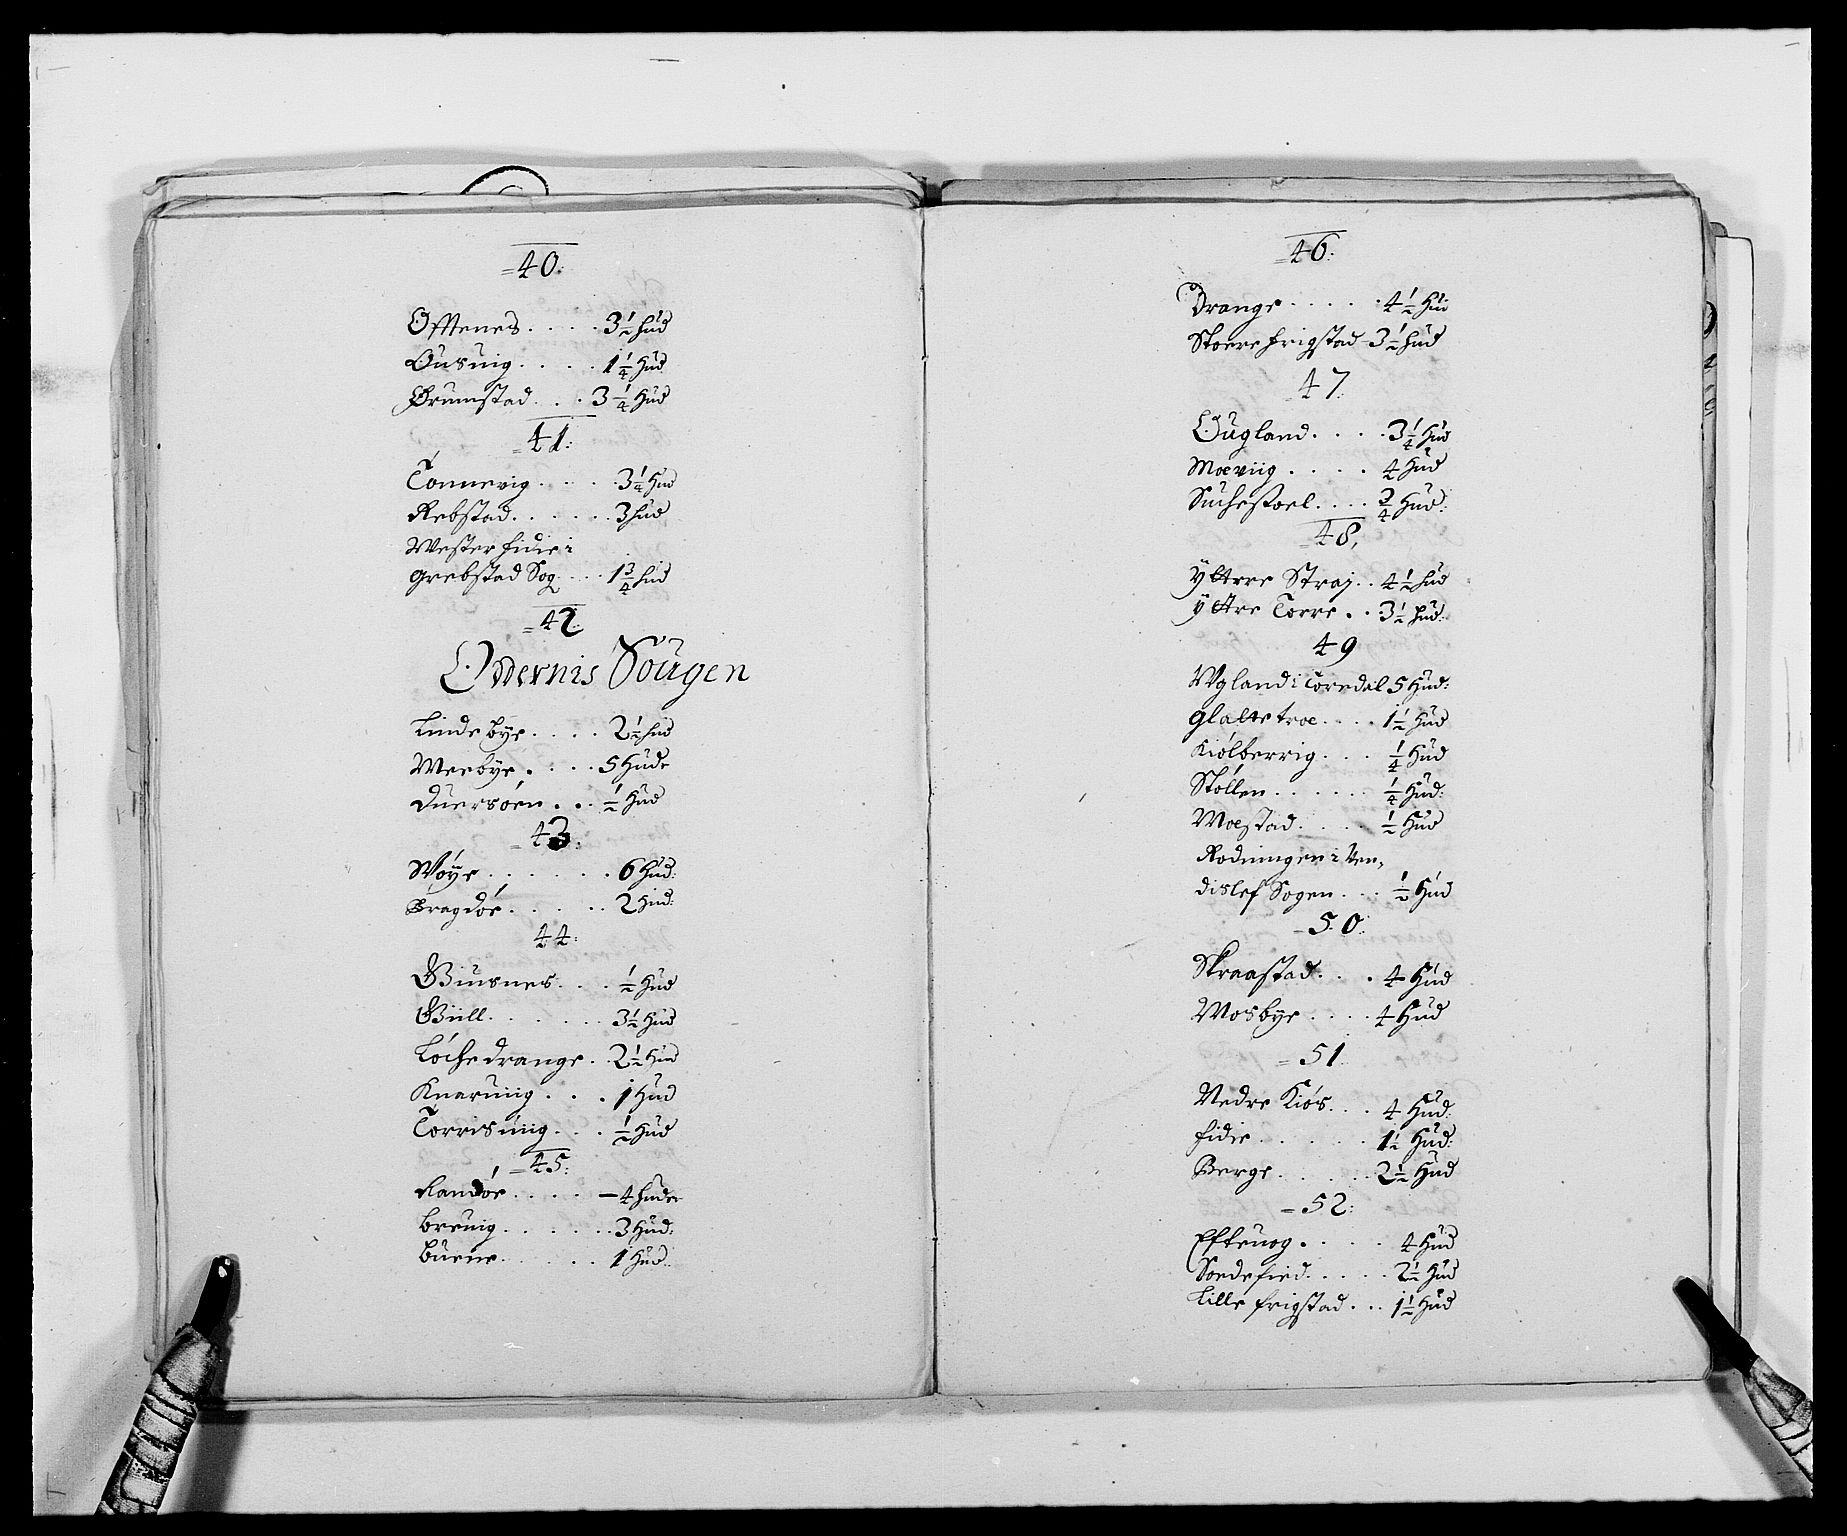 =40:
Offtenes.... 3½ hud
Ousuiig.... 1¼ Hud
Ørumstad... 3¼ Hud
=41:
Tonnevig.... 3¼ Hud
Rebstad...... 3 hud
Wester fidie i
grebstad Sog.... 1¾ hud
=42:
Oddernis Sougen
Lindebye.... 2½ hud
Meebye.... 5 Hude
Duersøen... ½ Hud
=43:
Wøye...... 6 Hud:
Bragdøe..... 2 Hud:
44:
Giusnes... ½ Hud
Giill...... 3½ Hud
Løchedrange.. 2½ Hud
Knaruiig... 1 Hud
Torrisuiig... ½ Hud
=45:
Randøe.... 4 huder
breuiig...... 3 Hud:
buene..... 1 Hud:
=46:
Drange..... 4½ Hud
Stoere frigstad 3½ hud
47:
Ougland.... 3¼ Hud
Moeviig.... 4 Hud
Suchestoel.... ¾ Hud:
=48,
Yttrre Straj.. 4½ hud
yttre Torre.. 3½ hud:
49
Wgland i Toredal 5 Hud:
glattetroe.... 1½ Hud
Kiølberrig... ¼ Hud
Støllen...... ¼ Hud:
Moestad.... ½ Hud
Rodningen i Ven,
dislef Sogen... ½ Hud
=50:
Skraastad... 4 Hud
Mosbye.... 4 Hud
=51
Nedre Kiøs... 4 Hud:
fidie...... 1½ Hud:
Berge...... 2½ Hud
=52:
Efteuog.... 4 Hud
Soedefied..... 2½ Hud
Lille frigstad... 1½ Hud